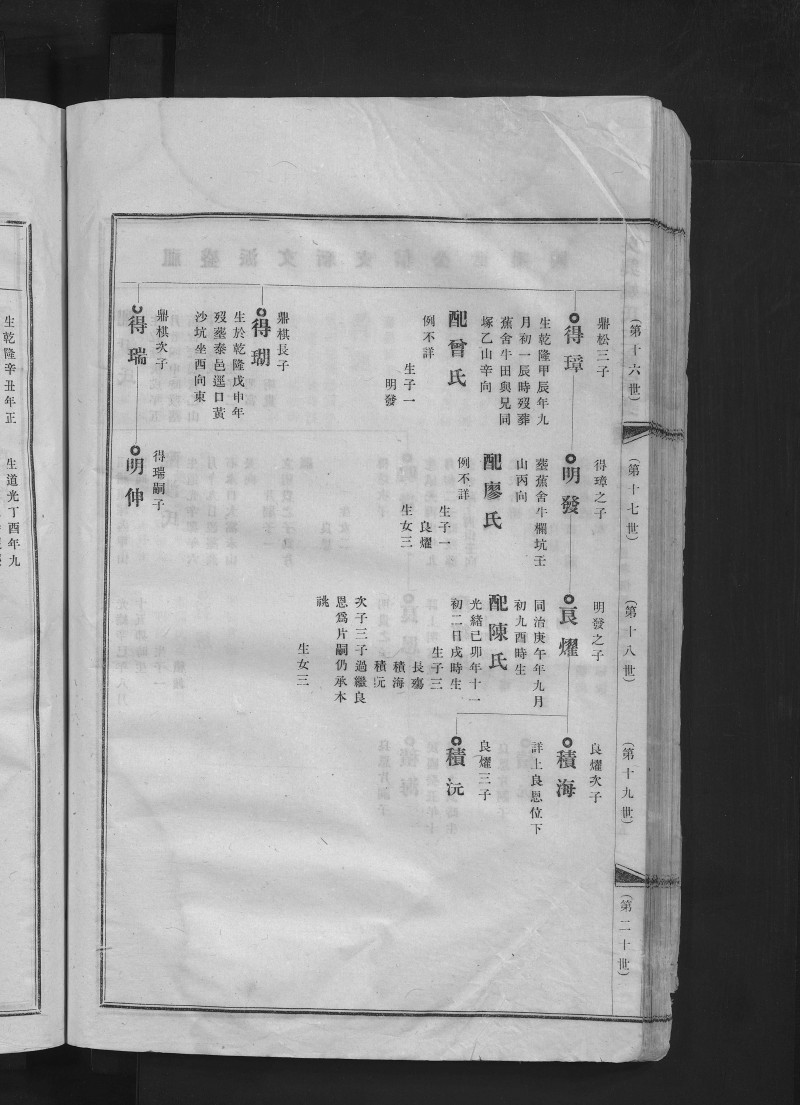 (第十六世)
鼎松三子
得璋
生乾隆甲辰年九
月初一辰時歿葬
蕉舍牛田與兄同
塚乙山辛向
配曾氏
例不詳
生子一
明發
鼎棋長子
得瑚
生於乾隆戊申年
歿塟泰邑逕口黃
沙坑坐西向東
鼎棋次子
得瑞
(第十七世)
得璋之子
明發
塟蕉舍牛欄坑壬
山丙向
配廖氏
例不詳
生子一
良燿
生女三
得瑞嗣子
明伸
(第十八世)
明發之子
良燿
同治庚午年九月
初九酉時生
配陳氏
光緒已卯年十一
初二日戌時生
生子三
長殤
積海
積沅
次子三子過繼良
恩爲片嗣仍承本
祧
生女三
(第十九世)
良燿次子
積海
詳上良恩位下
良燿三子
積沅
(第二十世)
生乾隆辛丑年正
生道光丁酉年九